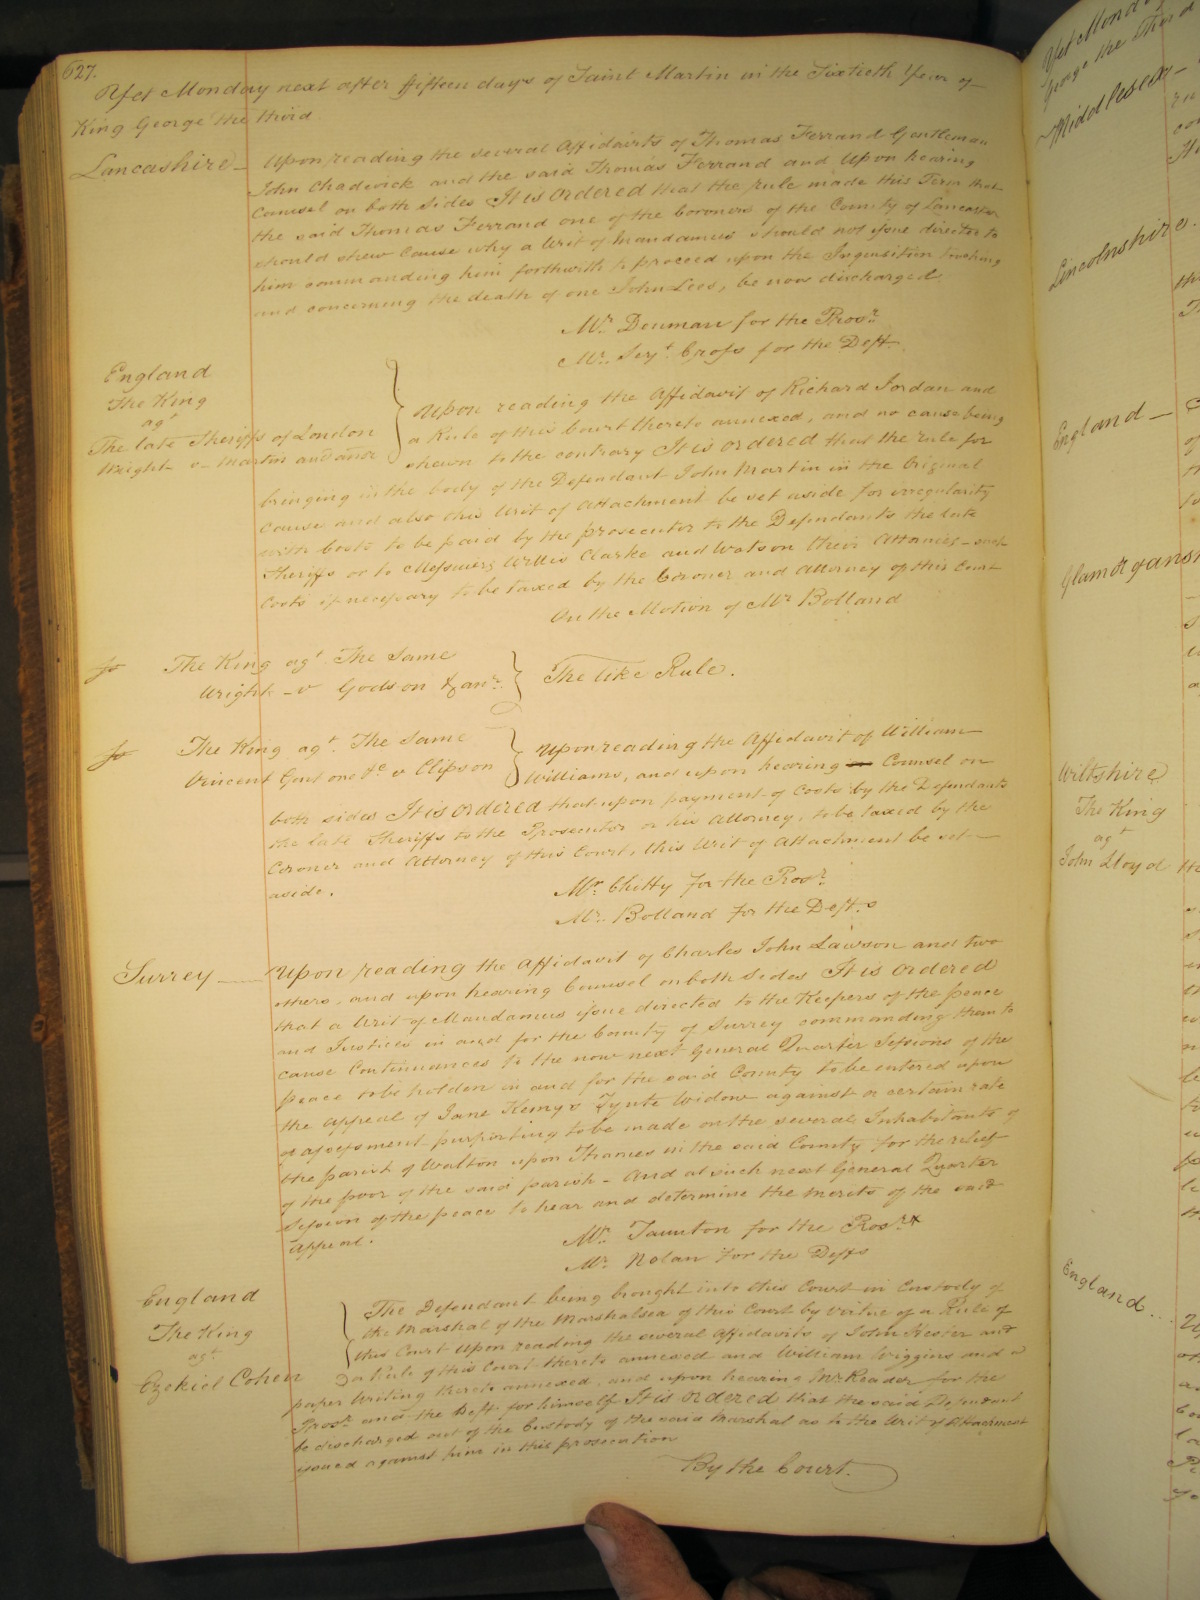 627.
Yet Monday next after fifteen days of Saint Martin in the Sixtieth Year of
King George the third
Lancashire – Upon reading the several Affidavits of Thomas Ferrand Gentleman
John Chadwick and the said Thomas Ferrand and Upon hearing
Counsel on both sides It is Ordered that the rule made this Term that
the said Thomas Ferrand one of the Coroners of the County of Lancaster
should shew Cause why a Writ of Mandamus should not issue directed to
him commanding him forthwith to proceed upon the Inquisition touching
and concerning the death of one John Lees, be now discharged.
Mr. Denman for the Prosr.
Mr. Serjt. Cross for the Deft.
England
The King
agt
The late Sheriffs of London
Wright v Martin and anor
Upon reading the Affidavit of Richard Jordan and
a Rule of this Court thereto annexed, and no cause being
shewn to the contrary It is ordered that the rule for
bringing in the body of the Defendant John Martin in the Original
Cause and also this Writ of Attachment be set aside for irregularity
with Costs to be paid by the prosecutor to the Defendants the late
Sheriffs or to Messieurs Willis Clarke and Watson their Attornies – such
Costs if necessary to be taxed by the Coroner and Attorney of this Court
On the Motion of Mr Bolland
The King agt The Same
Wright – v Godson & anr.
The like Rule.
The King agt. The Same
Vincent Gent one &c v Clipson
Upon reading the Affidavit of William
Williams, and upon hearing Counsel on
both sides It is ordered that upon payment of Costs by the Defendants
the late Sheriffs to the Prosecutor or his Attorney, to be taxed by the
Coroner and Attorney of this Court, this Writ of Attachment be set
aside.
Mr. Chitty for the Prosr.
Mr. Bolland for the Defts
Surrey Upon reading the Affidavit of Charles John Lawson and two
others, and upon hearing Counsel on both Sides It is ordered
that a Writ of Mandamus issue directed to the Keepers of the peace
and Justices in and for the County of Surrey commanding them to
cause Continuances to the now next General Quarter Sessions of the
peace to be holden in and for the said County to be entered upon
the appeal of Jane Kemys Tynte Widow against a certain rate
or assessment purporting to be made on the several Inhabitants of
the parish of Walton upon Thames in the said County for the relief
of the poor of the said parish – And at such next General Quarter
Session of the peace to hear and determine the merits of the said
appeal.
Mr. Taunton for the Prosr.
Mr. Nolan for the Defts
England
The King
agt
Ezekiel Cohen
The Defendant being brought into this Court in Custody of
the Marshal of the Marshalsea of this Court by virtue of a Rule of
this Court Upon reading the several Affidavits of John Hester and
a Rule of this Court thereto annexed and William Wiggins and a
paper Writing thereto annexed, and upon hearing Mr. Reader for the
Prosr. and the Deft. for himself It is ordered that the said Defendant
be discharged out of the Custody of the said Marshal as to the Writ of Attachment
issued against him in this prosecution
By the Court.
Middlesex –
Lincolnshire.
England –
Wiltshire
The King
agt
John Lloyd
England